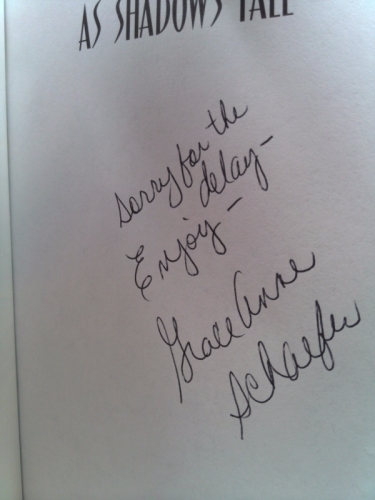 AS SHADOWS FALL
Sorry for the
delay-
Enjoy-
Grace Anne
Schaefer